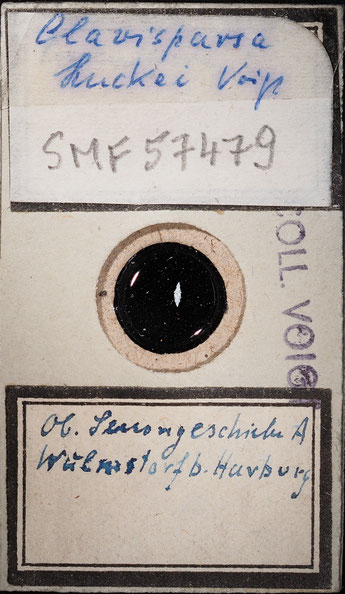 Clavisparsa
huckei Voigt
SMF 57479
COLL. VOIGT
Ob. Senongeschiebe A
Wulmstorf b. Harburg